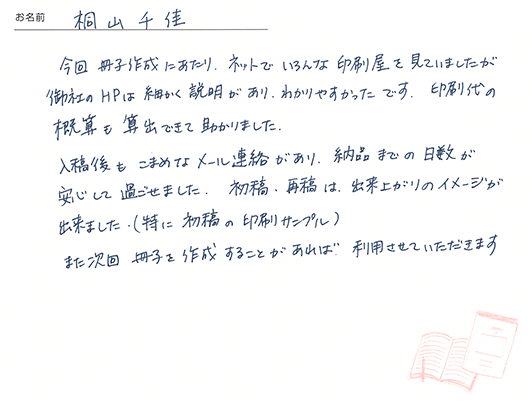 お名前 桐山千佳
今回 冊子作成にあたり、ネットでいろんな印刷屋を見ていましたが
御社のHPは細かく説明があり、わかりやすかったです。印刷代の
概算も算出できて助かりました。
入稿後もこまめなメール連絡があり、納品までの日数が
安心して過ごせました。初稿・再稿は、出来上がりのイメージが
出来ました。(特に初稿の印刷サンプル)
また次回 冊子を作成することがあれば 利用させていただきます